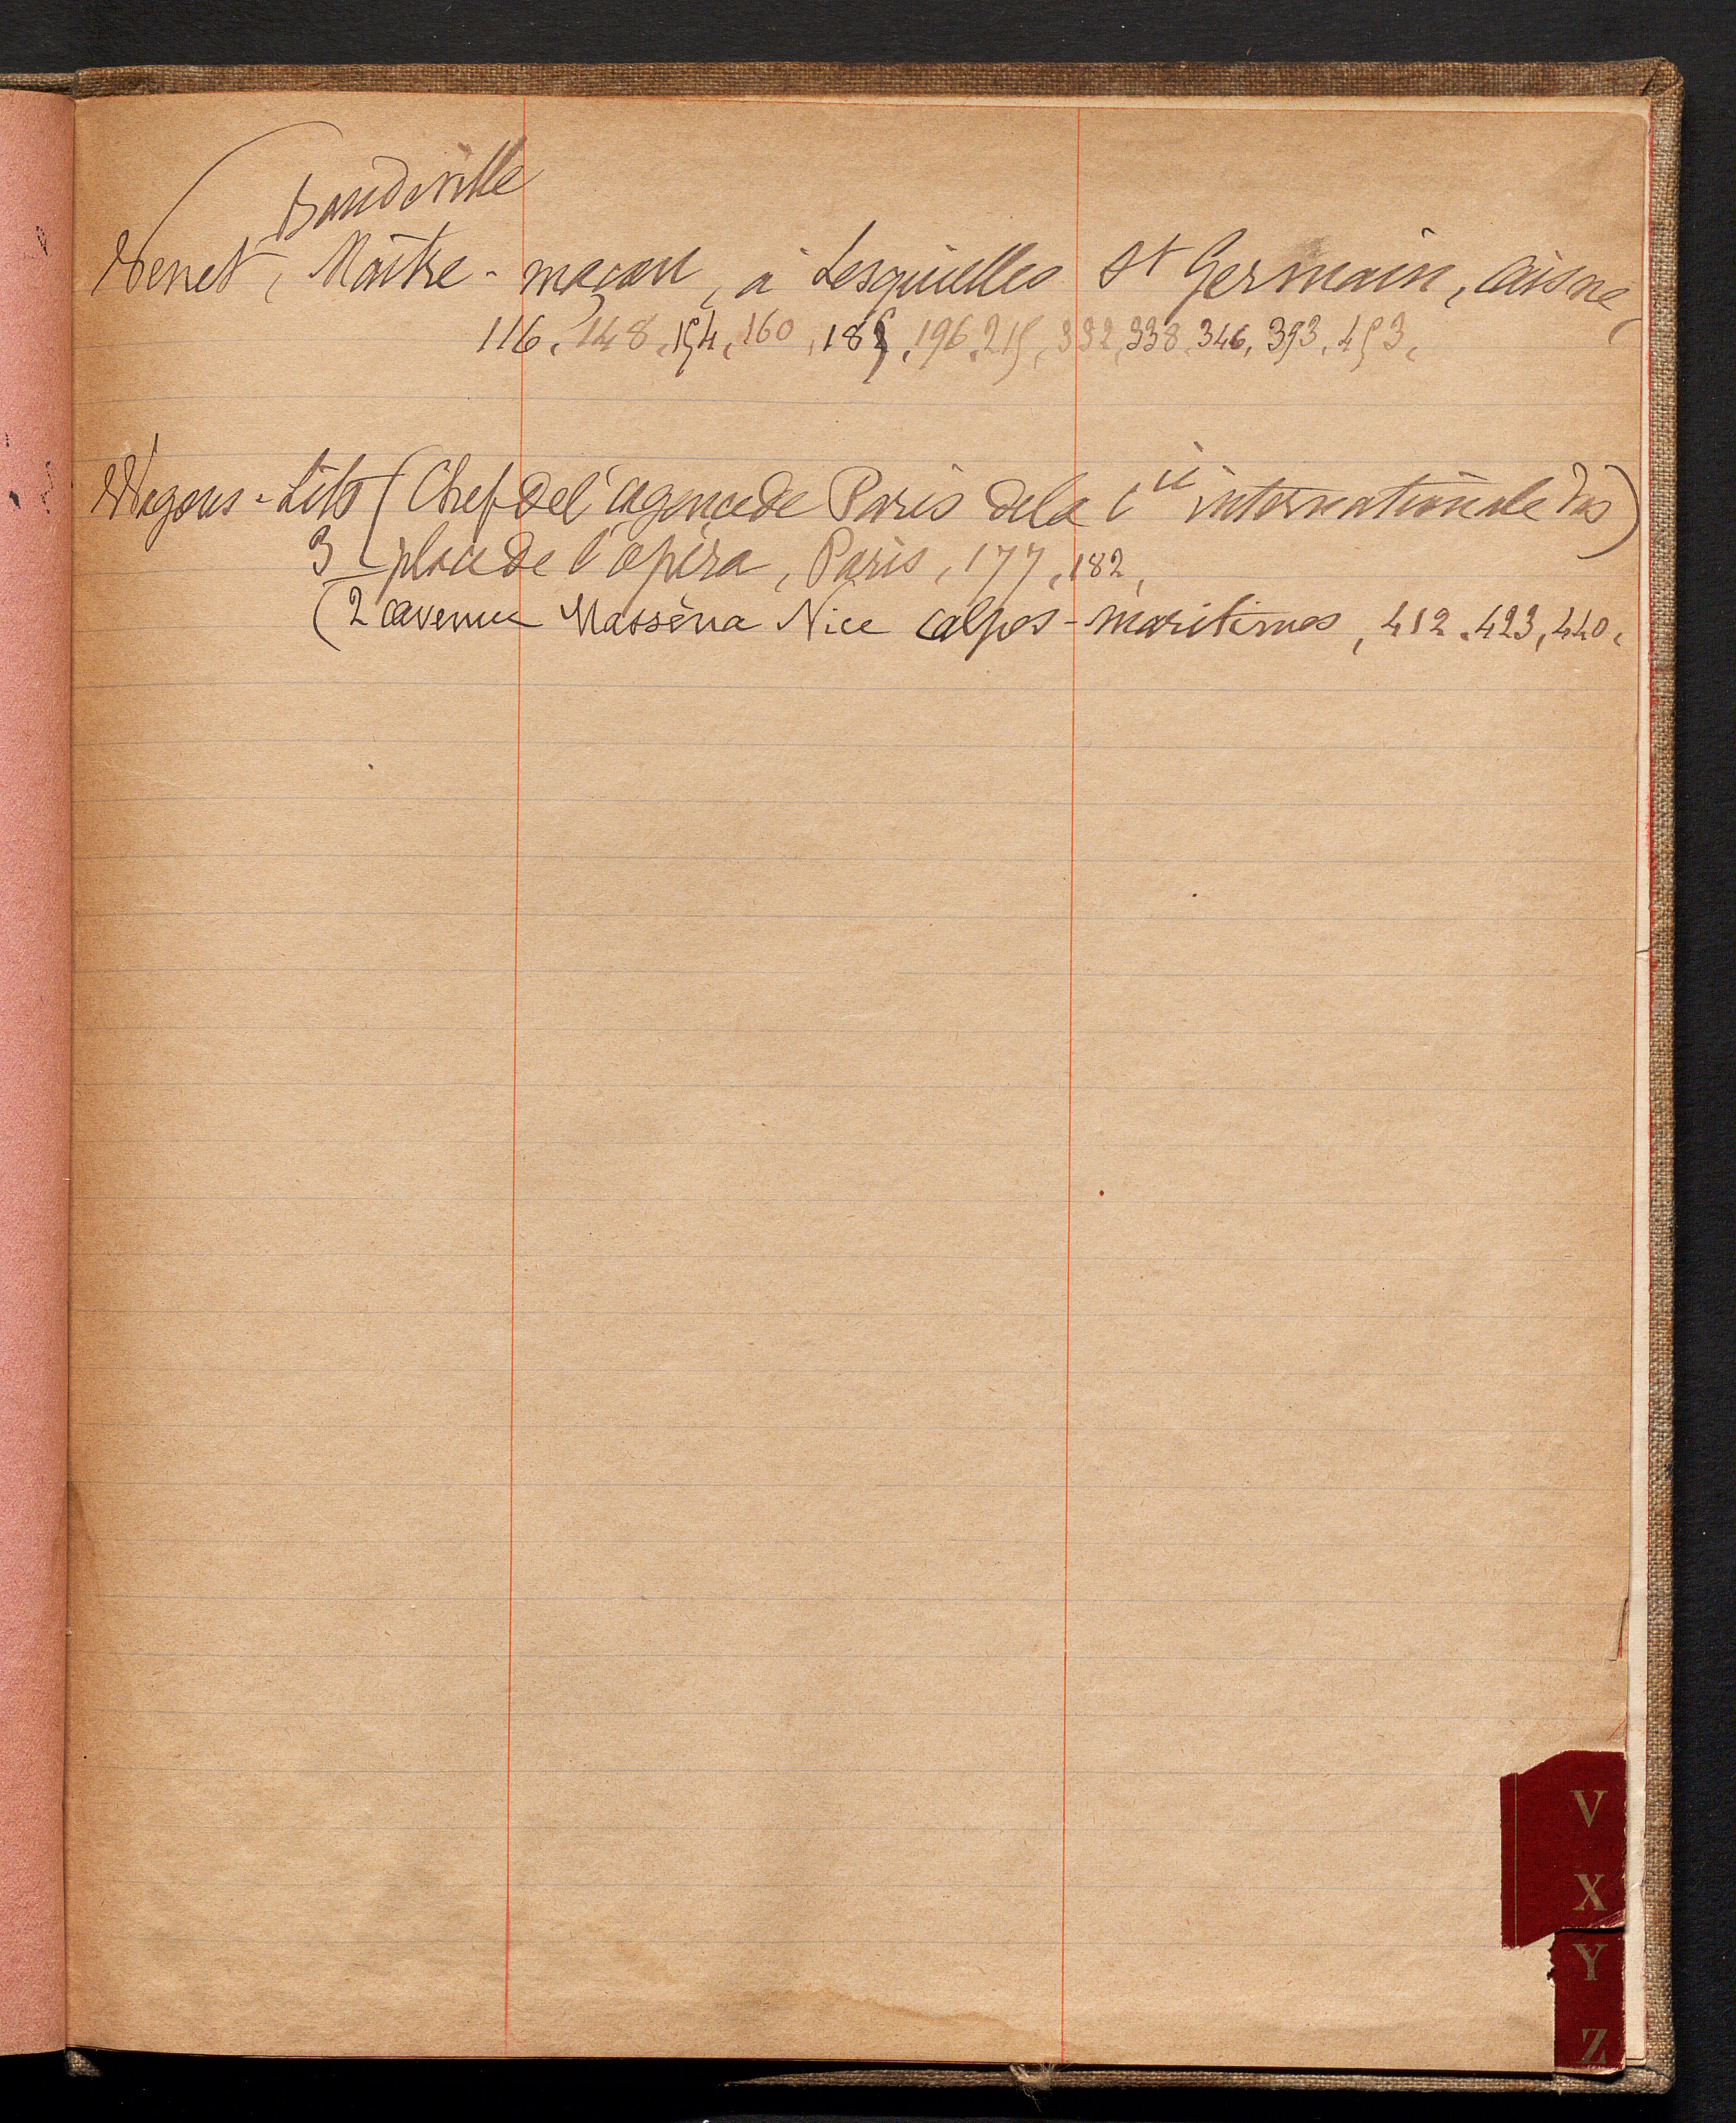 Baudeville
Wenet, Maître-maçon, à Lesquielles St Germain, aisne
116, 148, 154, 160, 185, 196, 215, 332, 338, 346, 393, 453,
Wagons-Lits (Chef de l'agence de Paris de la Cie internationale des)
3 place de l'opéra, Paris, 177, 182,
(2 avenue Masséna Nice alpes-maritimes, 412, 423, 440,
V
X
Y
Z